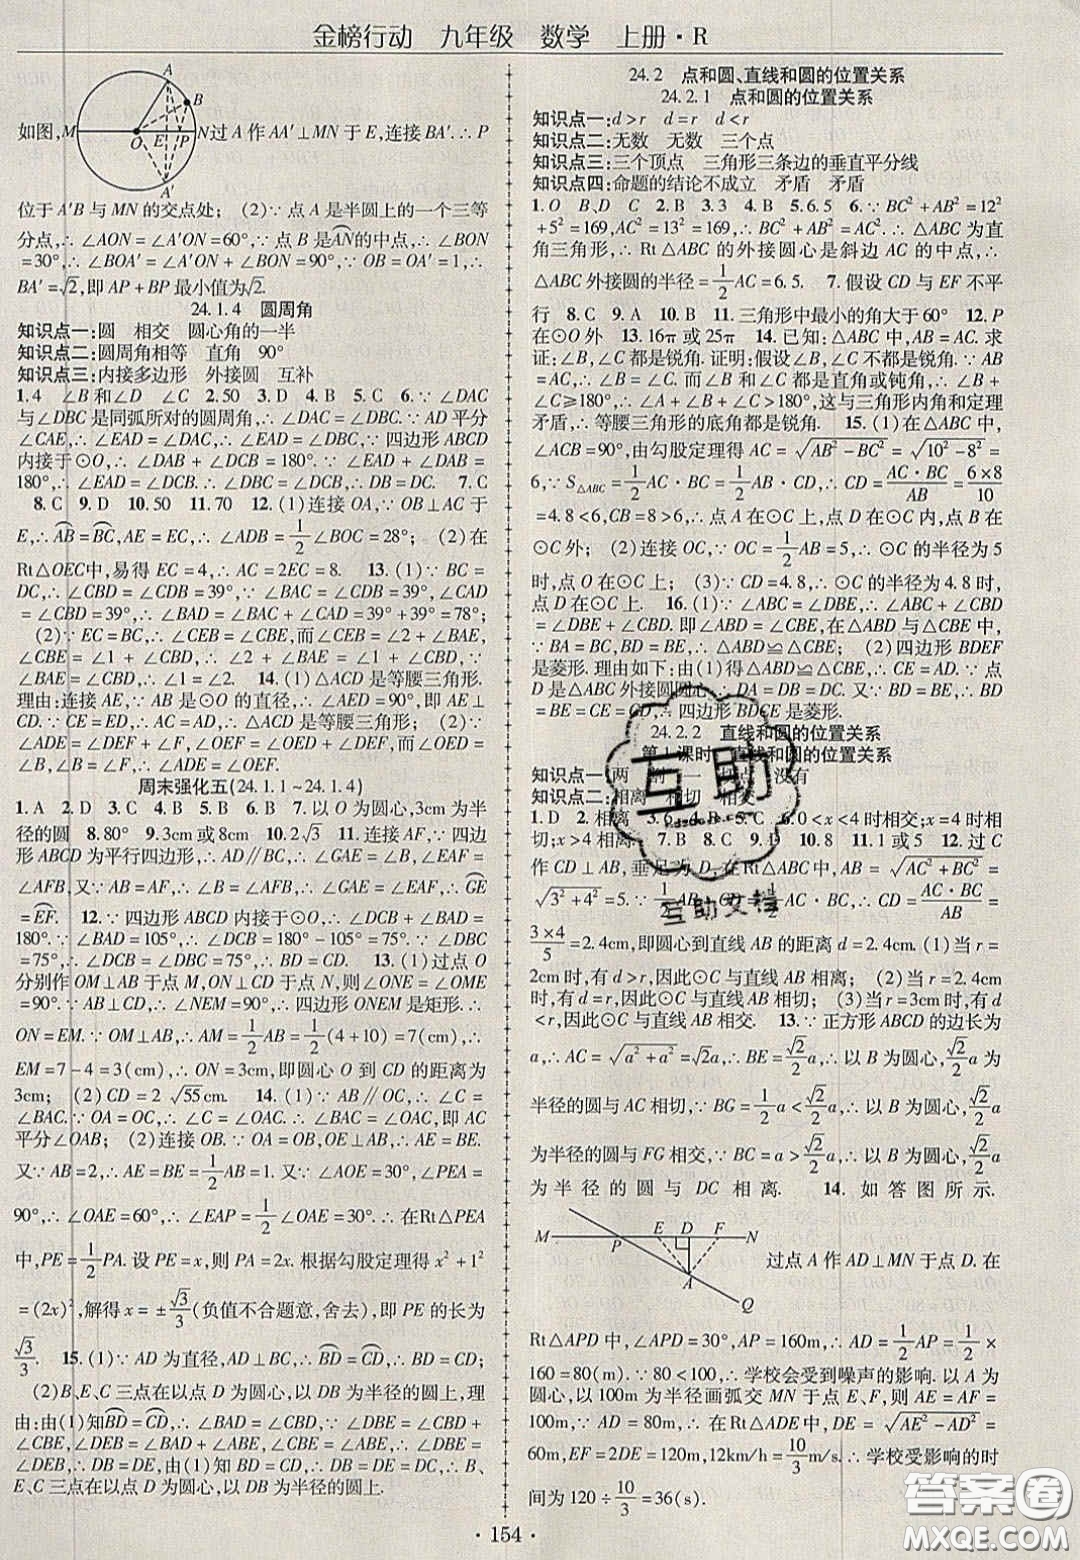 金榜行动 九年级 数学 上册·R
A
B
如图,M
O
E
P
N过A作AA′⊥MN于E,连接BA′.∴P
A′
位于A′B与MN的交点处；(2)∵点A是半圆上的一个三等
分点,∴∠AON=∠A′ON=60°,∵点B是AN的中点,∴∠BON
=30°,∴∠BOA′=∠A′ON+∠BON=90°,∵OB=OA′=1,∴
BA′=√2,即AP+BP最小值为√2.
24.1.4 圆周角
知识点一:圆 相交 圆心角的一半
知识点二:圆周角相等 直角 90°
知识点三:内接多边形 外接圆 互补
1.4 ∠B和∠D ∠C 2.50 3.D 4.B 5.C 6.∵∠DAC
与∠DBC是同弧所对的圆周角,∴∠DAC=∠DBC.∵AD平分
∠CAE,∴∠EAD=∠DAC,∴∠EAD=∠DBC,∵四边形ABCD
内接于⊙O,∴∠DAB+∠DCB=180°.∵∠EAD+∠DAB=
180°,∴∠EAD=∠DCB,∴∠DBC=∠DCB,∴DB=DC. 7.C
8.C 9.D 10.50 11.70 12.(1)连接OA,∵OB⊥AC于
E,∴AB=BC,AE=EC,∴∠ADB=1/2∠BOC=28°；(2)在
Rt△OEC中,易得EC=4,∴AC=2EC=8. 13.(1)∵BC=
DC,∴∠CBD=∠CDB=39°,∴∠BAC=∠CDB=39°,∠CAD
=∠CBD=39°,∴∠BAD=∠BAC+∠CAD=39°+39°=78°；
(2)∵EC=BC,∴∠CEB=∠CBE,而∠CEB=∠2+∠BAE,
∠CBE=∠1+∠CBD,∴∠2+∠BAE=∠1+∠CBD,∵
∠BAE=∠CBD,∴∠1=∠2. 14.(1)△ACD是等腰三角形.
理由:连接AE,∵AB是⊙O的直径,∴∠AED=90°,即AE⊥
CD.∵CE=ED,∴AC=AD,∴△ACD是等腰三角形；(2)
∵∠ADE=∠DEF+∠F,∠OEF=∠OED+∠DEF,而∠OED
=∠B,∠B=∠F,∴∠ADE=∠OEF.
周末强化五(24.1.1~24.1.4)
1.A 2.D 3.D 4.D 5.D 6.B 7.以O为圆心,3cm为半
径的圆 8.80° 9.3cm或8cm 10.2√3 11.连接AF,∵四
边形ABCD为平行四边形,∴AD∥BC,∴∠GAE=∠B,∠EAF=
∠AFB,又∵AB=AF,∴∠B=∠AFB,∴∠GAE=∠EAF,∴GE
=EF. 12.∵四边形ABCD内接于⊙O,∴∠DCB+∠BAD=
180°.∵∠BAD=105°,∴∠DCB=180°-105°=75°.∵∠DBC
=75°,∴∠DCB=∠DBC=75°,∴BD=CD. 13.(1)过点O
分别作OM⊥AB于点M,ON⊥CD于点N,则∠ONE=∠OME
=90°.∵AB⊥CD,∴∠NEM=90°,∴四边形ONEM是矩形,∴
ON=EM.∵OM⊥AB,∴AM=1/2AB=1/2(4+10)=7(cm),∴
EM=7-4=3(cm),∴ON=EM=3cm,即圆心O到CD的距离为
3cm；(2)CD=2√55cm. 14.(1)∵AB∥OC,∴∠C=
∠BAC.∵OA=OC,∴∠C=∠OAC,∴∠BAC=∠OAC,即AC
平分∠OAB；(2)连接OB.∵OA=OB,OE⊥AB,∴AE=BE.
又∵AB=2,∴AE=BE=1/2AB=1.又∵∠AOE=30°,∠PEA=
90°,∴∠OAE=60°,∴∠EAP=1/2∠OAE=30°.∴在Rt△PEA
中,PE=1/2PA.设PE=x,则PA=2x.根据勾股定理得x²+1²
=(2x)²,解得x=±√3/3(负值不合题意,舍去),即PE的长为
√3/3. 15.(1)∵AD为直径,AD⊥BC,∴BD=CD,∴BD=CD；
(2)B、E、C三点在以点D为圆心,以DB为半径的圆上,理
由:由(1)知BD=CD,∴∠BAD=∠CBD.∵∠DBE=∠CBD+
∠CBE,∠DEB=∠BAD+∠ABE,∠CBE=∠ABE,∴∠DBE=
∠DEB,∴DB=DE,由(1)知BD=CD,∴DB=DE=DC,∴B、
E、C三点在以点D为圆心,以DB为半径的圆上.
24.2 点和圆、直线和圆的位置关系
24.2.1 点和圆的位置关系
知识点一:d>r d=r d<r
知识点二:无数 无数 三个点
知识点三:三个顶点 三角形三条边的垂直平分线
知识点四:命题的结论不成立 矛盾 矛盾
1.O B、D C 2.B 3.3 4.B 5.6.5 6.∵BC²+AB²=12²
+5²=169,AC²=13²=169,∴BC²+AB²=AC².∴△ABC为直
角三角形,∴Rt△ABC的外接圆心是斜边AC的中点,∴
△ABC外接圆的半径=1/2AC=6.5. 7.假设CD与EF不平
行 8.C 9.A 10.B 11.三角形中最小的角大于60° 12.P
在⊙O外 13.16π或25π 14.已知:△ABC中,AB=AC.求
证:∠B、∠C都是锐角.证明:假设∠B、∠C不都是锐角.∵AB
=AC,∴∠B=∠C,∴∠B、∠C都是直角或钝角,∴∠B+
∠C≥180°,∴∠A+∠B+∠C>180°,这与三角形内角和定理
矛盾,∴等腰三角形的底角都是锐角. 15.(1)在△ABC中,
∠ACB=90°,由勾股定理得AC=√AB²-BC²=√10²-8²=
6,∵S△ABC=1/2AC·BC=1/2AB·CD,∴CD=AC·BC/AB=6×8/10
=4.8<6,CB=8>6,∴点A在⊙C上,点D在⊙C内,点B在
⊙C外；(2)连接OC,∵OC=1/2AB=5,∴⊙C的半径为5
时,点O在⊙C上；(3)∵CD=4.8,∴⊙C的半径为4.8时,
点D在⊙C上. 16.(1)∵∠ABC=∠DBE,∴∠ABC+∠CBD
=∠DBE+∠CBD.即∠ABD=∠CBE,在△ABD与△CBE中,
∵BA=BC,BD=BE,∴△ABD≌△CBE；(2)四边形BDEF
是菱形.理由如下:由(1)得△ABD≌△CBE,∴CE=AD.∵点
D是△ABC外接圆圆心,∴DA=DB=DC.又∵BD=BE,∴BD=
BE=CE=CD,∴四边形BDCE是菱形.
24.2.2 直线和圆的位置关系
第1课时 直线和圆的位置关系
知识点一:两 没有
知识点二:相离 相切 相交
1.D 2.相离 3.6 4.B 5.C 6.0<x<4时相交;x=4时相
切;x>4时相离 7.B 8.C 9.D 10.8 11.1或5 12.过C
作CD⊥AB,垂足为D.在Rt△ABC中,AB=√AC²+BC²=
√3²+4²=5.∵1/2AB·CD=1/2AC·BC,∴CD=AC·BC/AB=
3×4/5=2.4cm,即圆心到直线AB的距离d=2.4cm.(1)当r=
2cm时,有d>r,因此⊙C与直线AB相离；(2)当r=2.4cm
时,有d=r,因此⊙C与直线AB相切；(3)当r=3cm时,有d
<r,因此⊙C与直线AB相交. 13.∵正方形ABCD的边长为
a,∴AC=√a²+a²=√2a,∴BE=√2/2a,∴以B为圆心,√2/2a为
半径的圆与AC相切,∵BG=1/2a<√2/2a,∴以B为圆心,√2/2a
为半径的圆与FG相交,∵BC=a>√2/2a,∴以B为圆心,√2/2a
为半径的圆与DC相离. 14.如答图所示.
M
P
E D F
N
A
Q
过点A作AD⊥MN于点D.在
Rt△APD中,∠APD=30°,AP=160m,∴AD=1/2AP=1/2×
160=80(m).∵80<100,∴学校会受到噪声的影响.以A为
圆心,以100m为半径画弧交MN于点E、F,则AE=AF=
100m,∵AD=80m,∴在Rt△ADE中,DE=√AE²-AD²=
60m,EF=2DE=120m,12km/h=10/3m/s,∴学校受影响的时
间为120÷10/3=36(s).
互助
互助文档
·154·
答案圈
MXQE.COM